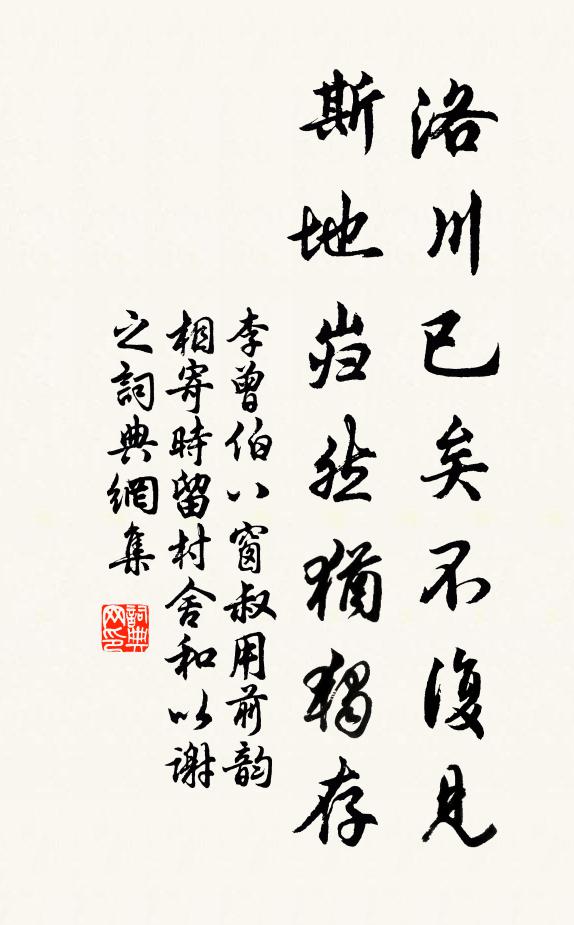 洛川已矣不復見
斯地岿然猶獨存
李曾伯八窗叔用前韵
相寄時留村舍和以謝
之詞典網集
詞典网印